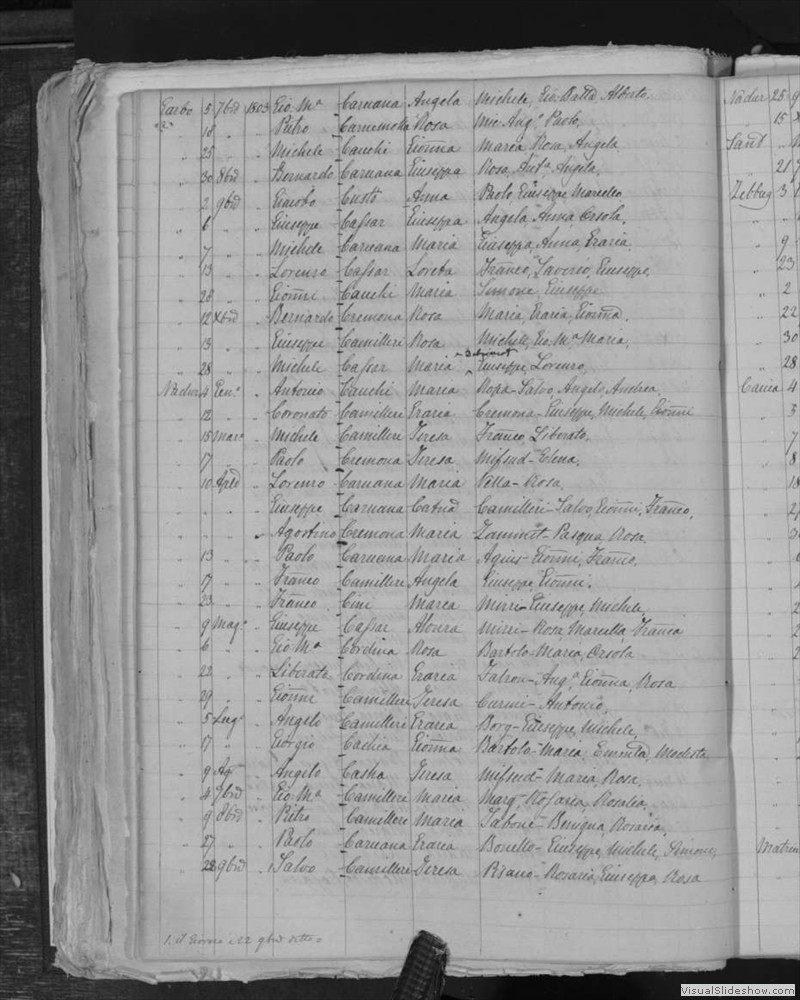 Garbo 5 7bre 1803 Gio. Ma Caruana Angela Michele, Gio. Batta, Alberto.
18 " " Pietro Carnemolla Rosa Mic. Ang.o Paolo.
" 25 " " Michele Cauchi Gionna Maria Rosa, Angela
" 30 8bre " Bernardo Caruana Giuseppa Rosa, Anta Angela,
" 2 9bre " Giacobo Custo Anna Paolo, Giuseppe Marcello
" 6 " " Giuseppe Cassar Giuseppa Angela Anna, Orsola,
" 7 " " Michele Caruana Maria Giuseppa, Anna, Grazia.
" 13 " " Lorenzo Cassar Loreta Franco, Saverio, Giuseppe,
" 28 " " Gionni Cauchi Maria Simone, Giuseppe
" 12 Xbre " Bernardo Cremona Rosa Maria, Grazia, Gionna.
" 13 " " Giuseppe Camilleri Rosa Michele, Gio. Ma Maria,
" 28 " " Michele Cassar Maria Giuseppe, Lorenzo,
Nadur 4 Gen.o " Antonio Cauchi Maria Salvo, Angelo, Andrea,
" 12 " Coronato Camilleri Grazia Cremona - Giuseppe, Michele, Gionni
" 15 Marzo " Michele Camilleri Teresa Franco Liberato.
" 17 " Paolo Cremona Teresa Mifsud - Elena.
" 10 Aple " Lorenzo Caruana Maria Vella - Rosa.
" " " Giuseppe Caruana Catna Camilleri - Salvo, Gionni, Franco,
" Agostino Cremona Maria Zammit - Pasqua, Rosa.
" 13 " Paolo Caruana Maria Agius - Gionni, Franco.
" 17 " " Franco Camilleri Angela Giuseppe, Gionni.
" 23 " " Franco Cini Maria - Giuseppe, Michele,
" 9 Mag.o " Giuseppe Cassar - Rosa, Marcella, Franca
" 6 " " Gio. Ma Cordina Rosa Bartolo - Maria, Orsola
" 22 " " Liberato Cordina Grazia - Ang.a Gionna, Rosa
" 29 " " Gionni Camilleri Teresa Curmi - Antonio,
" 5 Lug.o " Angelo Camilleri Grazia Borg - Giuseppe, Michele,
" 17 " " Giorgio Cachia Gionna Bartolo - Maria, Modesta
" 9 Ag.o " Angelo Casha Teresa Mifsud - Maria, Rosa,
" 4 7bre " Gio. Ma Camilleri Maria Rosaria, Rosalia,
" 9 8bre " Pietro Camilleri Maria Tabone - Benigna, Rosaria,
" 27 " Paolo Caruana Grazia Bonello - Giuseppe, Michele, Simone,
" 22 9bre " Salvo Camilleri Teresa Pisano - Rosaria, Giuseppe, Rosa
1. il Giorno 22 9bre
Nadur 25 9
" 15 X
Sant
" 21
Zebbug 3
" 9
" 23
" 2
" 22
" 30
" 28
Cauia 4
" 3
" 7
" 8
" 18
Matrim
VisualSlideshow.com